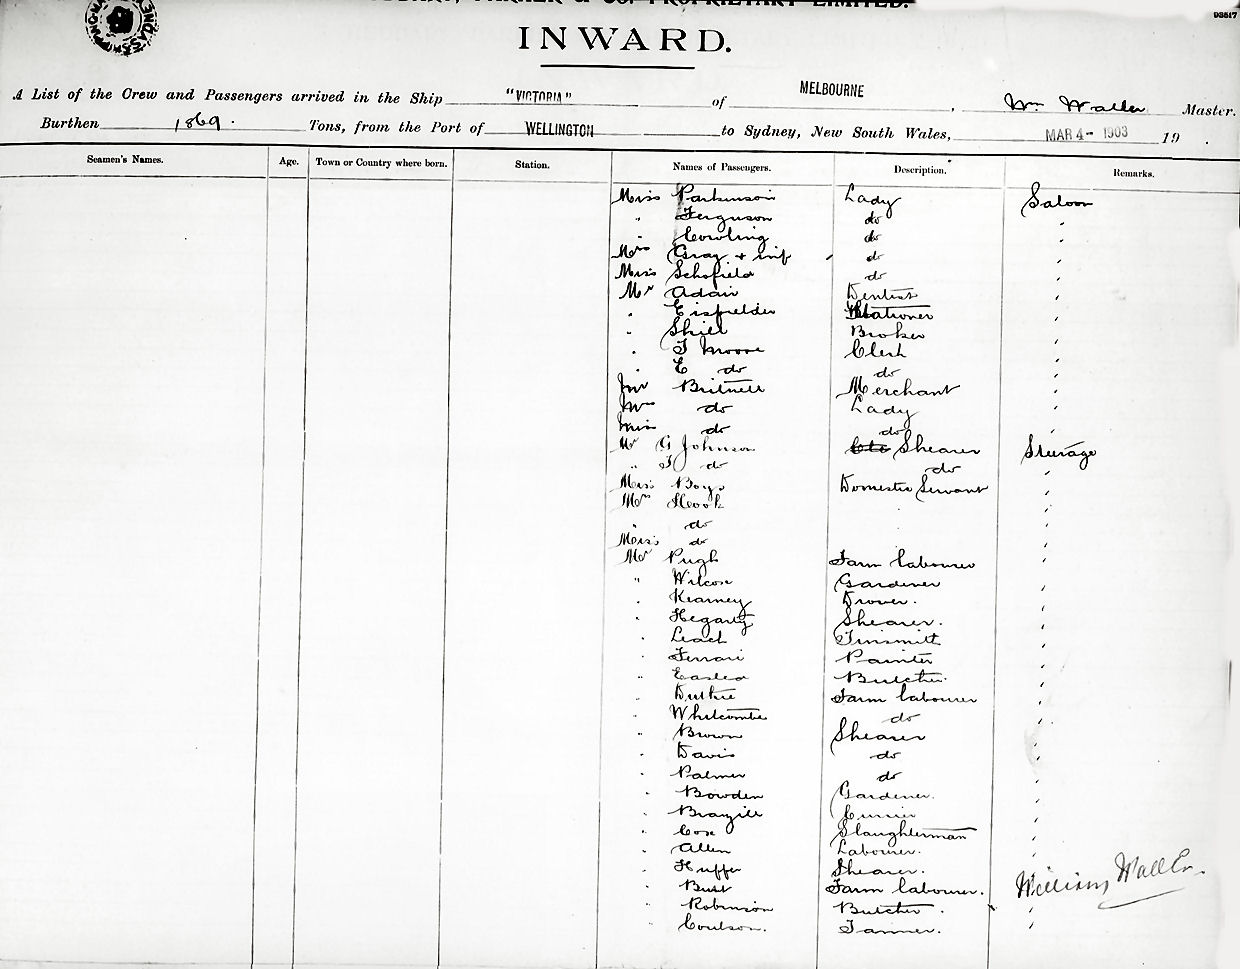 PROPRIETARY LIMITED.
93517
INWARD.
A List of the Crew and Passengers arrived in the Ship "VICTORIA" of MELBOURNE, Wm Waller Master.
Burthen 1369. Tons, from the Port of WELLINGTON to Sydney, New South Wales, MAR 4- 1903 19
Seamen's Names. Age. Town or Country where born. Station. Names of Passengers. Description. Remarks.
Miss Parkinson Lady Saloon
" Ferguson do "
" Cowling do "
Mrs Gray + inf do "
Miss Schofield do "
Mr Adair Dentist "
" Eisfelder Stationer "
" Shiel Broker "
" T Moore Clerk "
" E do do "
Mr Britnell Merchant "
Mrs do Lady "
Miss do do "
Mr G Johnson Shearer Steerage
" J do do "
Miss Boys Domestic Servant "
Mrs Hook "
" do "
Miss do "
Mr Pugh Farm labourer "
" Wilcox Gardener "
" Kearney Drover. "
" Hegarty Shearer. "
" Leach Tinsmith "
" Ferrari Painter "
" Butcher "
" Duthie Farm labourer "
" Whitcombe do "
" Brown Shearer "
" Davis do "
" Palmer do "
" Bowden Gardener. "
" Brazill Currier "
" Cox Slaughterman "
" Allen Labourer. "
" Huffer Shearer. "
" Farm labourer. William Waller
" Robinson Butcher. "
" Coulson. Tanner. "